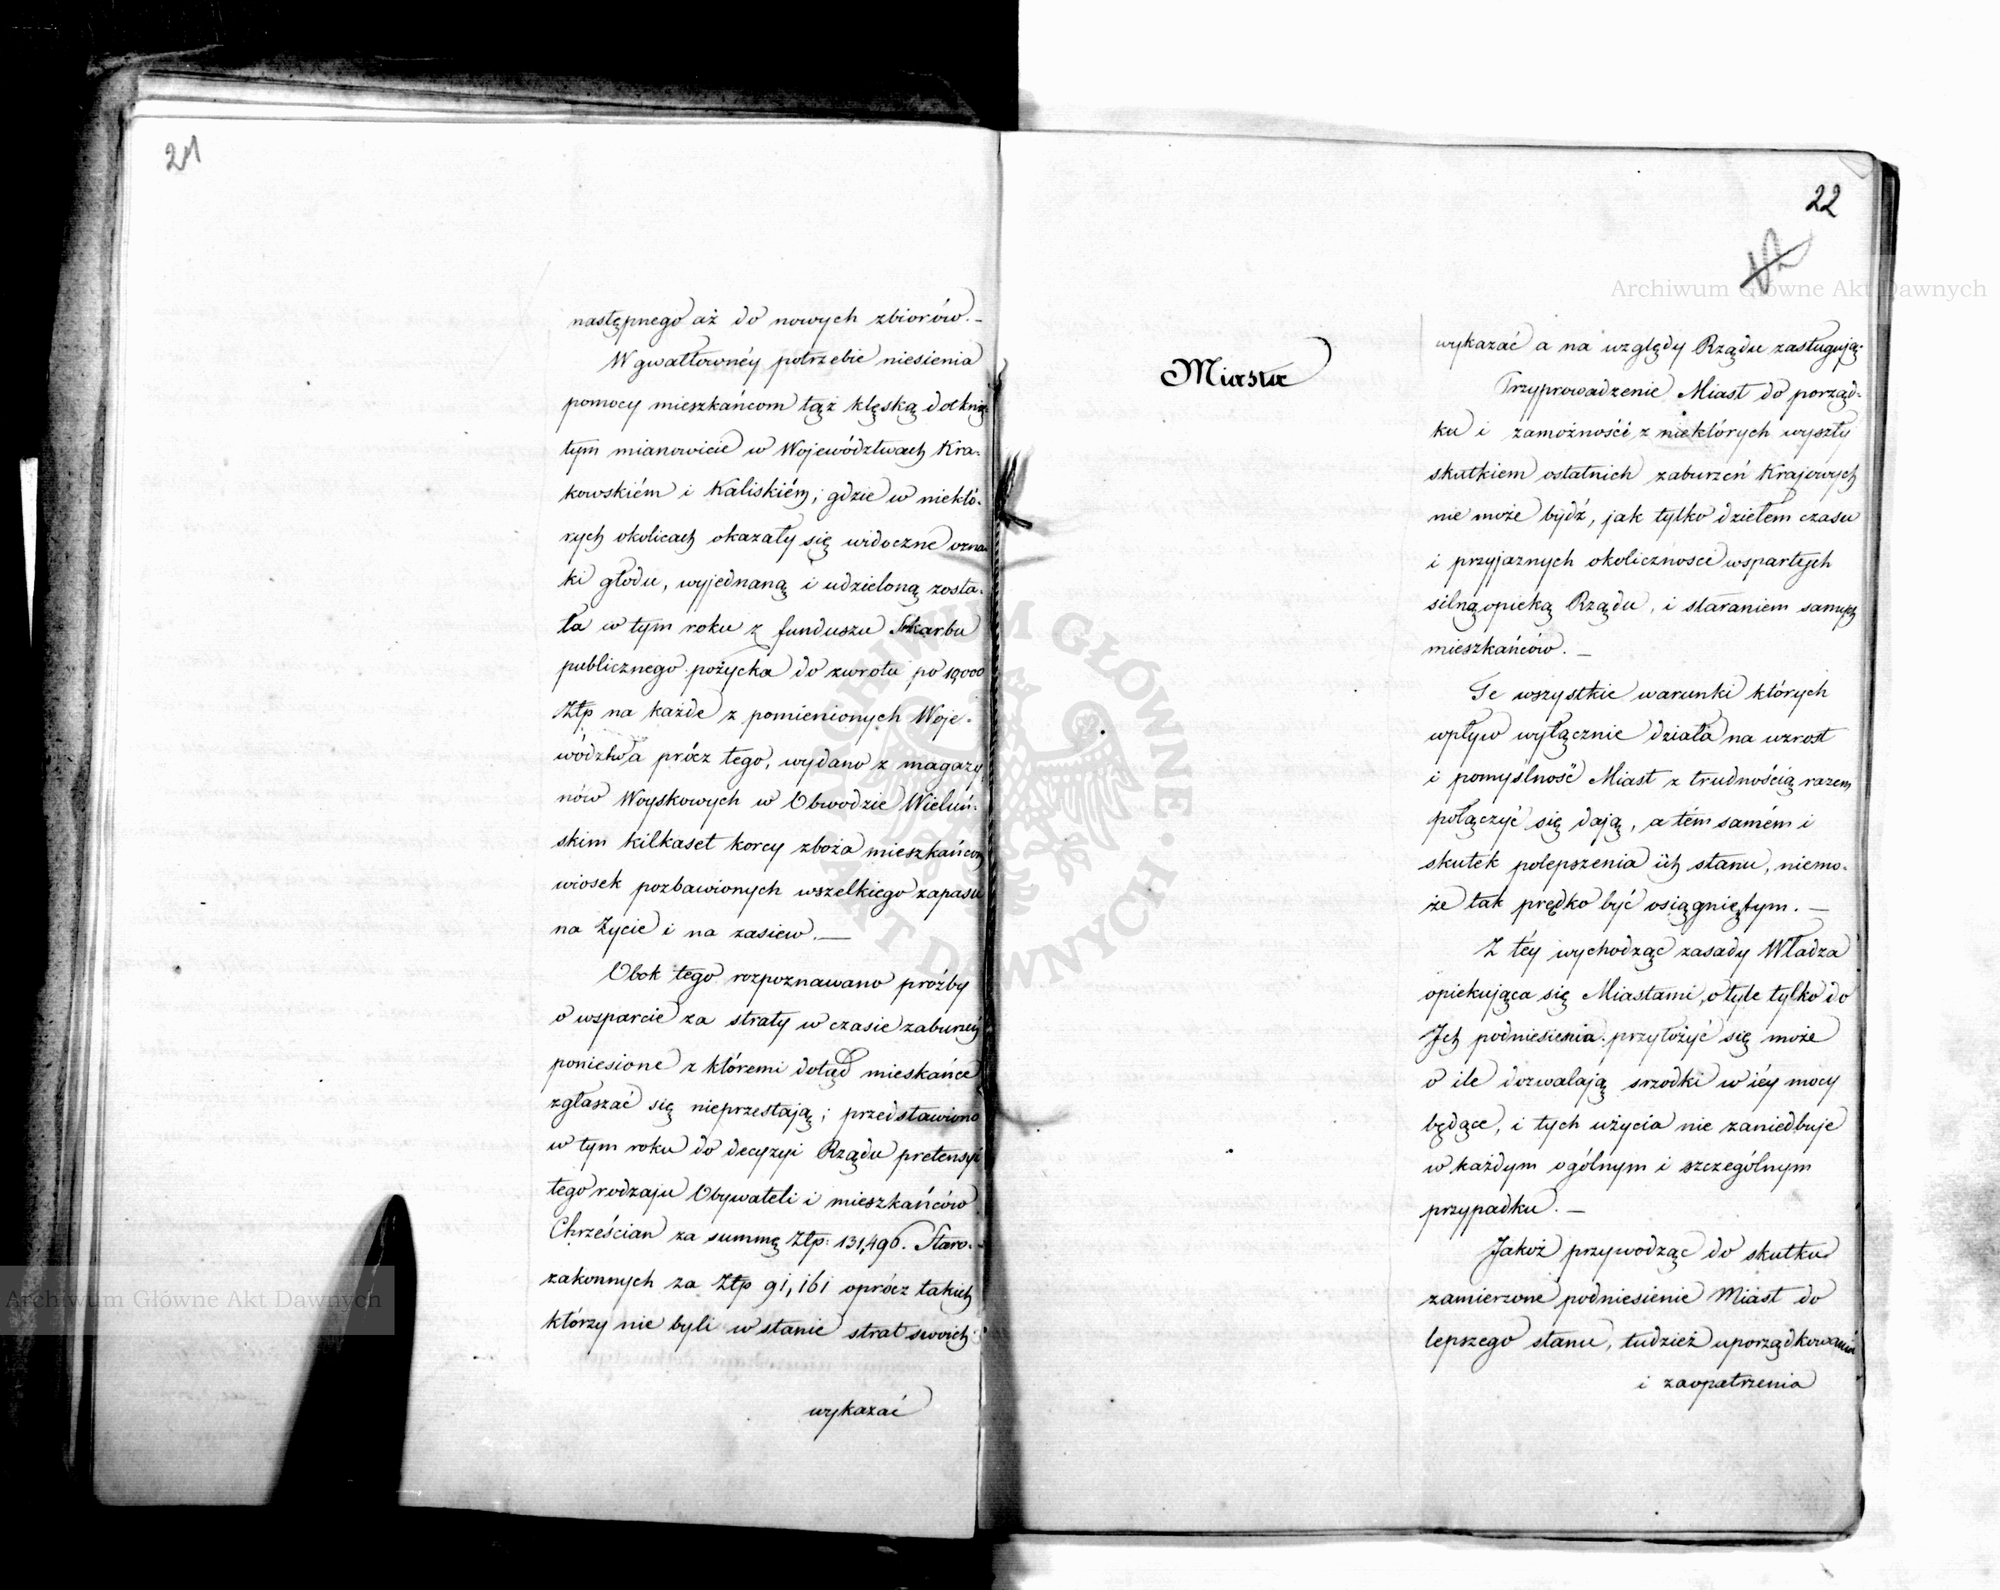 21
następnego aż do nowych zbiorów.—
W gwałtownéy potrzebie niesienia
pomocy mieszkańcom tąż klęską dotknię-
tym mianowicie w Województwach Kra-
kowskiém i Kaliskiém, gdzie w niektó-
rych okolicach okazały się widoczne ozna-
ki głodu, wyjednaną i udzieloną zosta-
ła w tym roku z funduszu Skarbu
publicznego pożyczka do zwrotu po 10,000
Złp na każde z pomienionych Woje-
wództwa prócz tego, wydano z magazy-
nów Woyskowych w Obwodzie Wieluń-
skim kilkaset korcy zboża mieszkańcom
wiosek pozbawionych wszelkiego zapasu
na życie i na zasiew.—
Obok tego rozpoznawano próźby
o wsparcie za straty w czasie zaburzeń
poniesione z któremi dotąd mieskańce
zgłaszać się nieprzestają; przedstawiono
w tym roku do decyzyi Rządu pretensyi
tego rodzaju Obywateli i mieszkańców
Chrześcian za summę Złp: 131,496. Staro-
zakonnych za Złp 91,161 oprócz takich
którzy nie byli w stanie strat swoich
wykazać
22
Miasta
wykazać a na względy Rządu zasługują.
Przyprowadzenie Miast do porząd-
ku i zamożności z niektórych wyszły
skutkiem ostatnich zaburzeń Krajowych
nie może bydź, jak tylko dziełem czasu
i przyjaznych okoliczności wspartych
silną opieką Rządu, i staraniem samych
mieszkańców.—
Te wszystkie warunki których
wpływ wyłącznie działa na wzrost
i pomyślność Miast z trudnością razem
połączyć się dają, a tém samém i
skutek polepszenia ich stanu, niemo-
że tak prędko być osiągniętym.—
Z téy wychodząc zasady Władza
opiekująca się Miastami, o tyle tylko do
Ich podniesienia przyłożyć się może
o ile dozwalają srzodki w iéy mocy
będące, i tych użycia nie zaniedbuje
w każdym ogólnym i szczególnym
przypadku.—
Jakoż przywodząc do skutku
zamierzone podniesienie Miast do
lepszego stanu, tudzież uporządkowania
i zaopatrzenia
Archiwum Główne Akt Dawnych
Archiwum Główne Akt Dawnych
ARCHIWUM GŁÓWNE AKT DAWNYCH